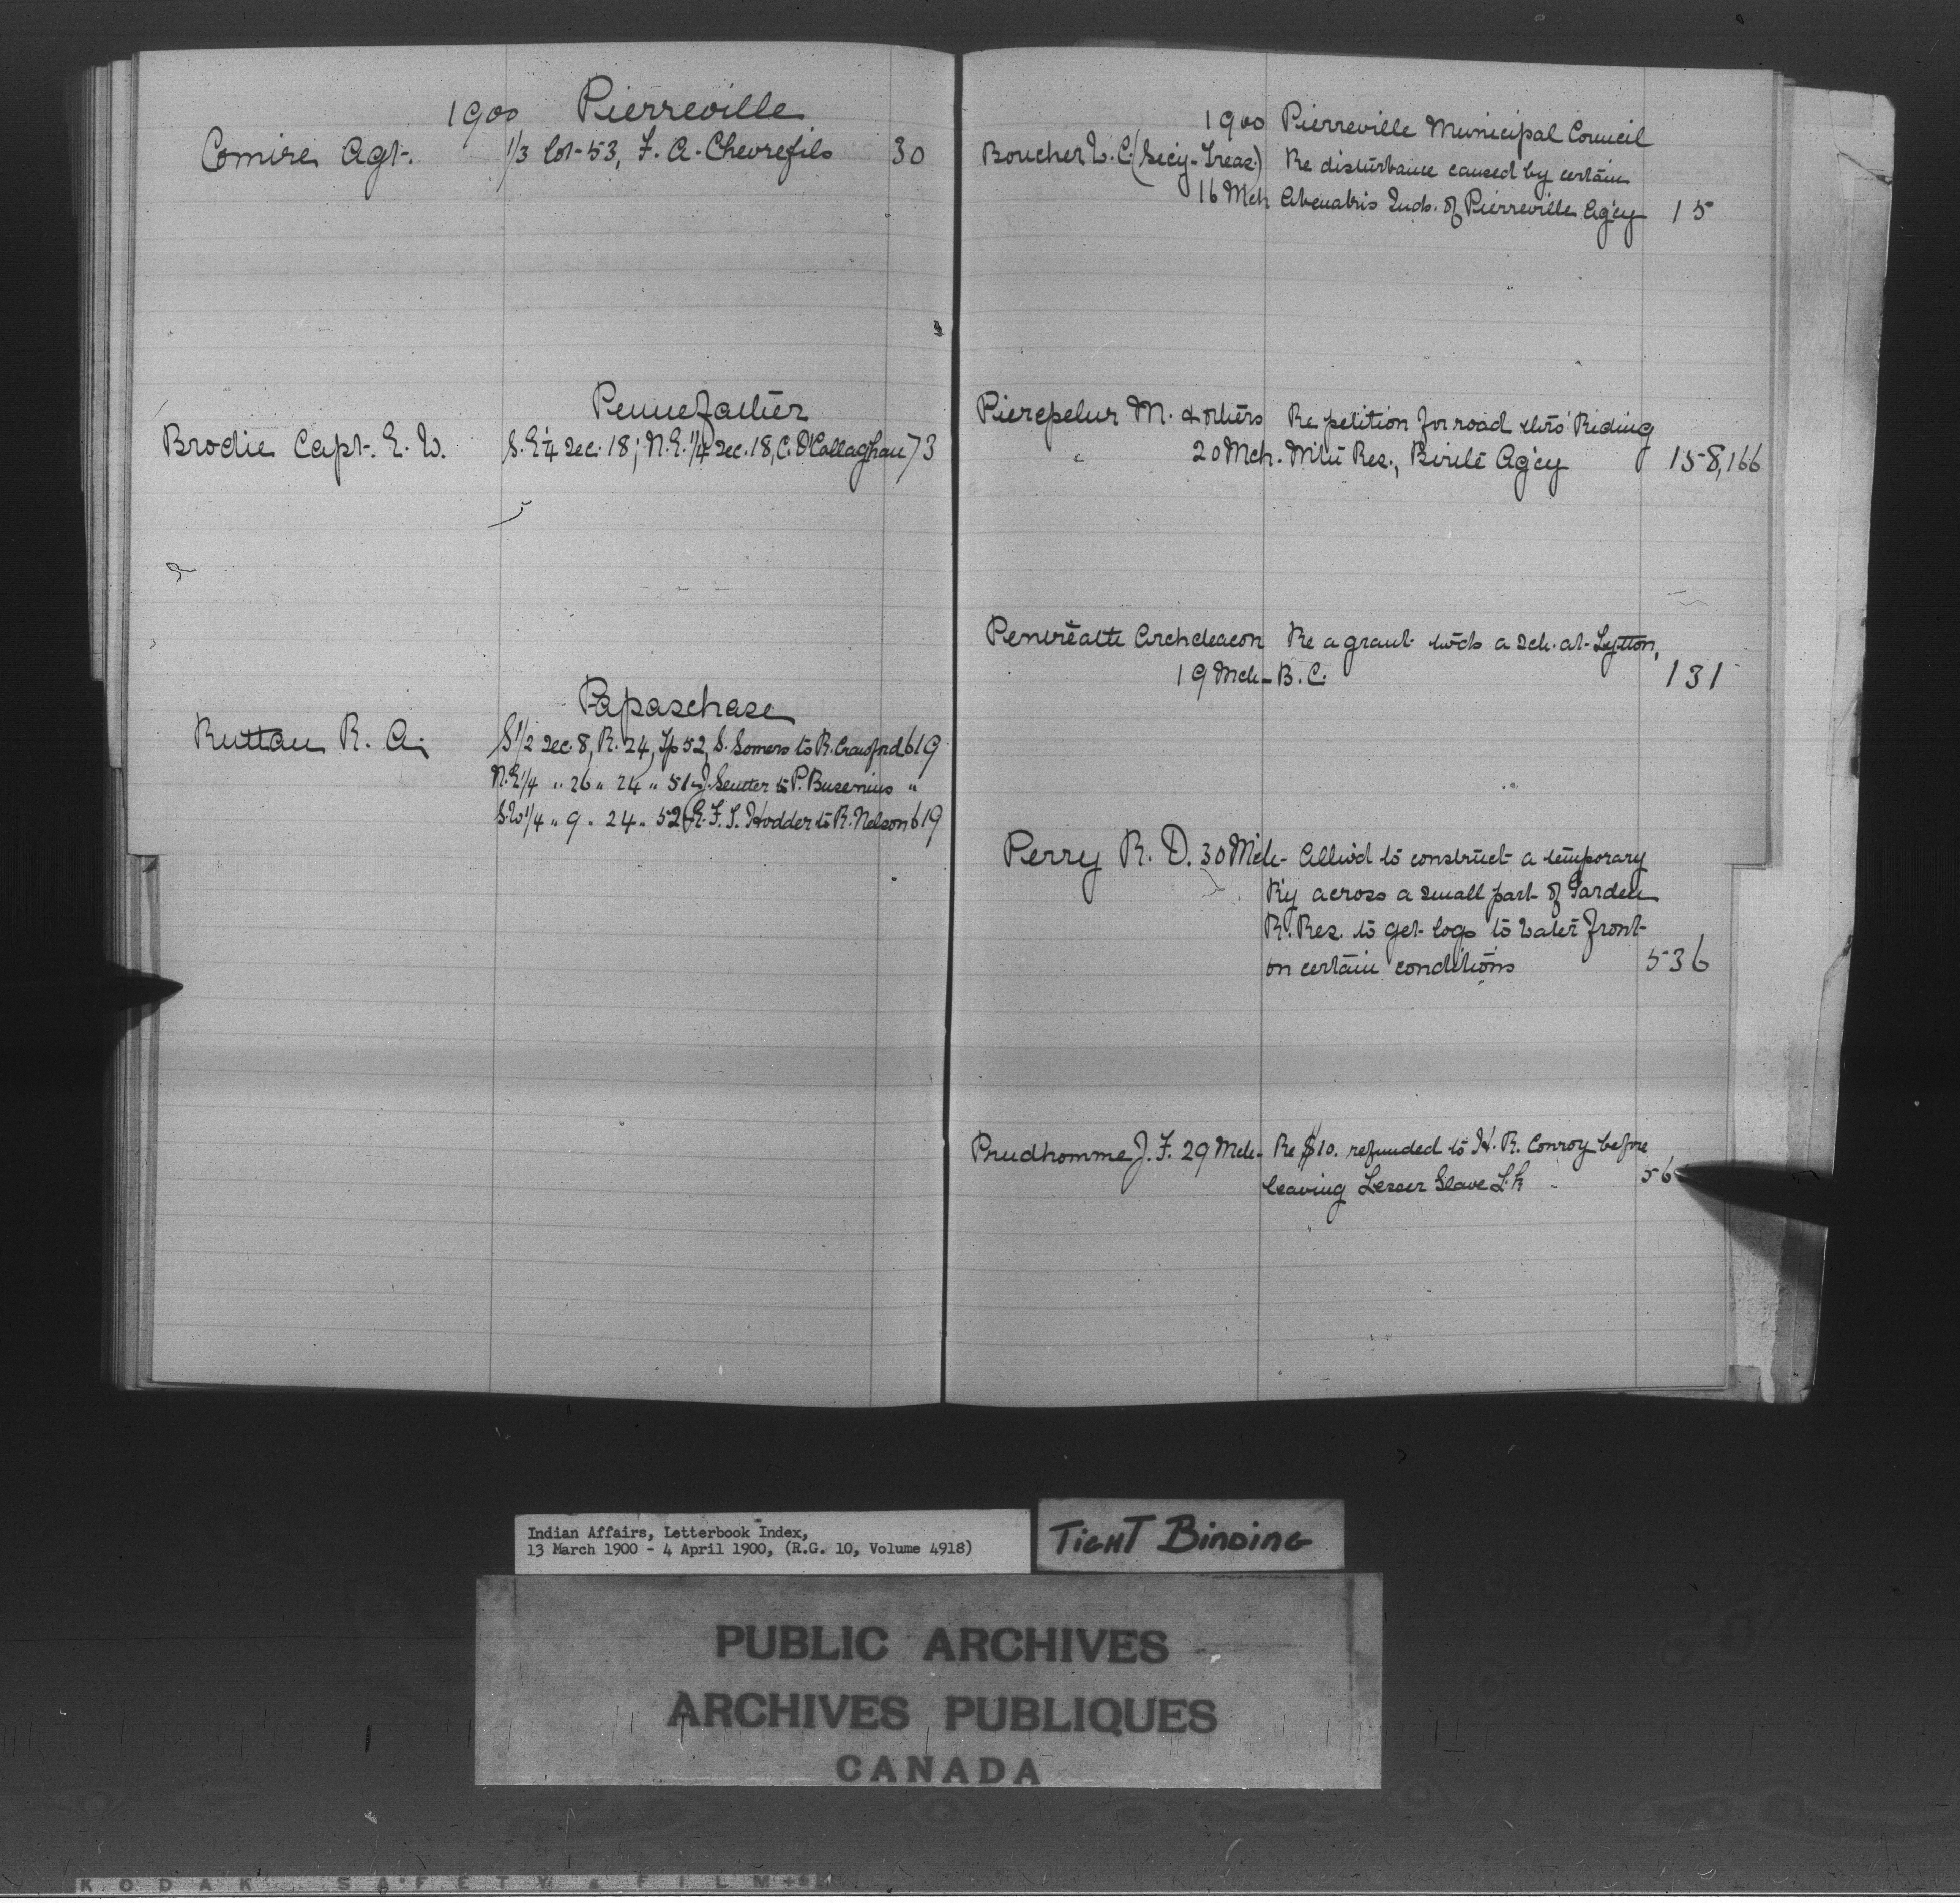 1900 Pierreville
Comire Agt. 1/3 lot 53, F. A. Chevrefils 30
Pennefather
Brodie Capt. E. W. S.E¼ Sec. 18; N.E. 1/4 Sec. 18, C. O'Callaghan 73
Papaschase
Ruttan R. A. S1/2 Sec. 8, R. 24, Tp 52, S. Somers to R. Crawford 619
N.E 1/4 " 26 " 24 " 51 J. Senter to P. Busenius "
S.W 1/4 " 9 " 24 " 52 F. S. Hodder to R. Nelson 619
1900 Pierreville Municipal Council
Boucher L. C. (Secy-Treas.) Re disturbance caused by certain
16 Mch Abenakis Inds. of Pierreville Ag'cy 15
M. & others Re petition for road thro' Riding
20 Mch. Mtn Res., Birtle Ag'cy 158, 166
Pentreath Archdeacon Re a grant twds a sch. at Lytton,
19 Mch - B. C. 131
Perry R. D. 30 Mch - Allw'd to construct a temporary
R'y across a small part of Garden
R. Res. to get logs to water front
on certain conditions 536
Prudhomme J. F. 29 Mch - Re $10. refunded to H. R. Conroy before
leaving Lesser Slave Lk 56
Indian Affairs, Letterbook Index,
13 March 1900 - 4 April 1900, (R.G. 10, Volume 4918)
TIGHT BINDING
PUBLIC ARCHIVES
ARCHIVES PUBLIQUES
CANADA
KODAK SAFETY FILM